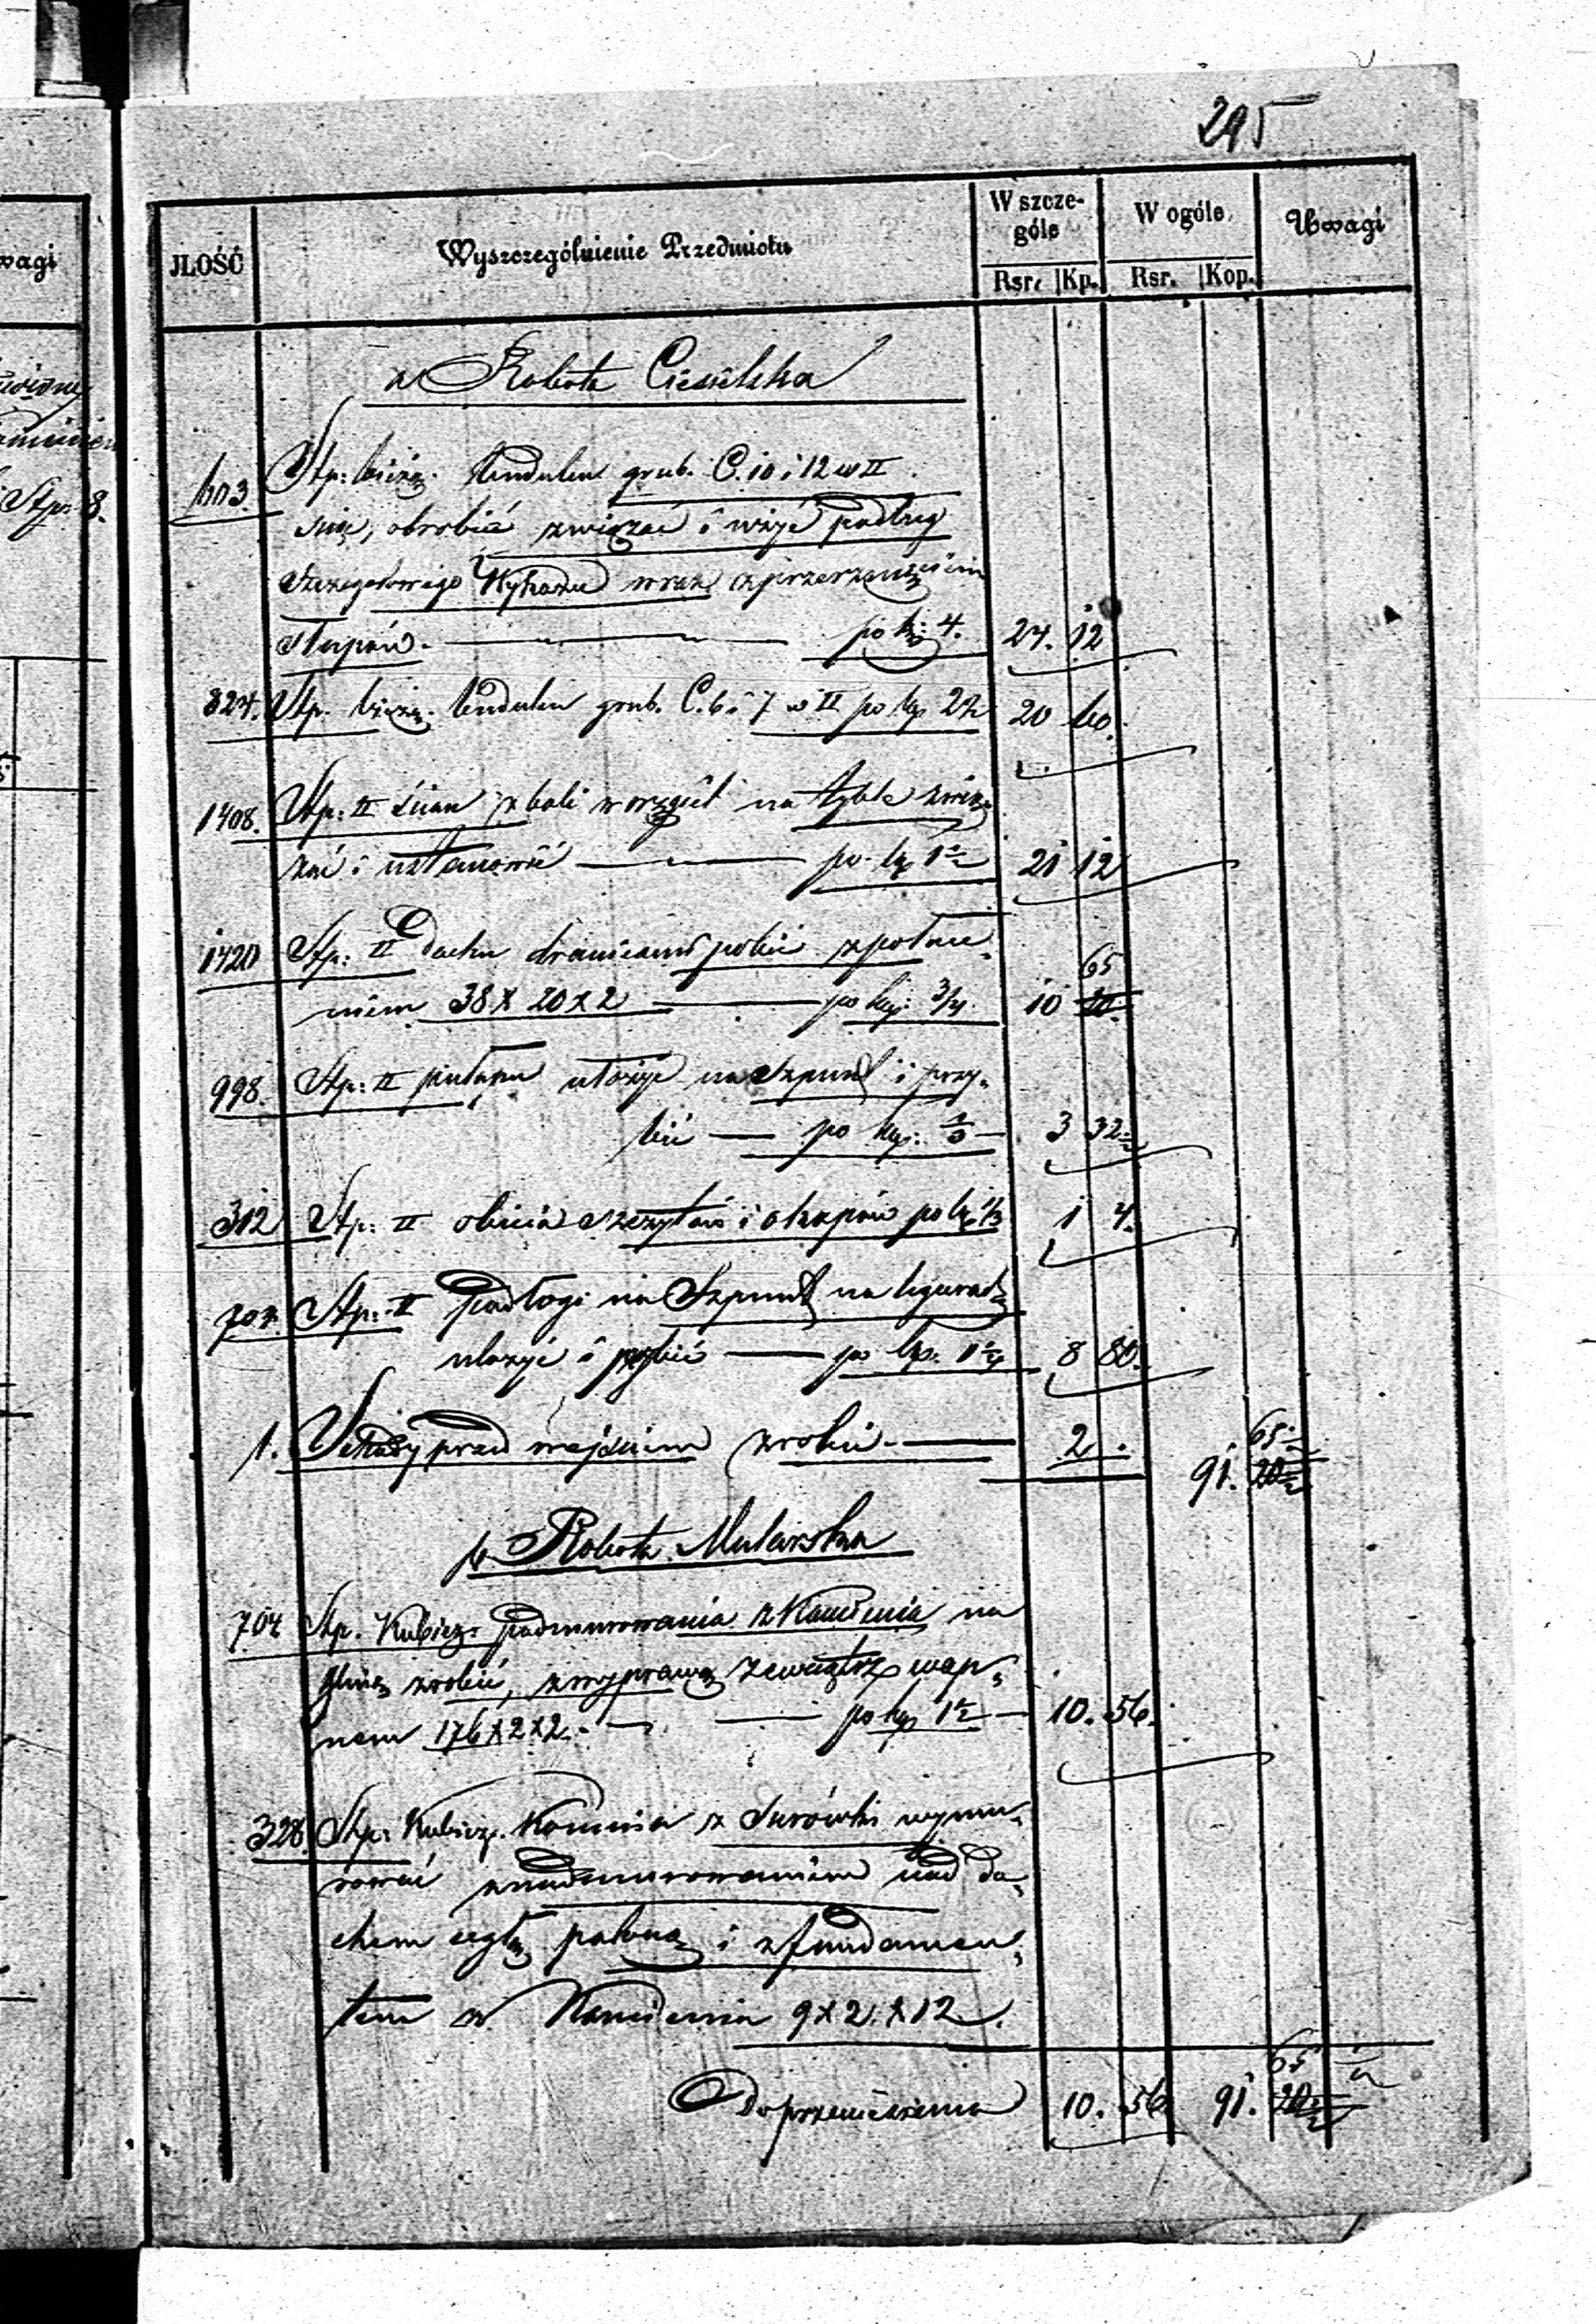 295
JLOŚĆ Wyszczególnienie Przedmiotu W szcze- W ogóle Uwagi
góle
Rsr. Kp. Rsr. Kop.
a Robota Ciesielska
603. Stp: bieżą. budulcu grub. C. 10 i 12 w II
obrobić związać i użyć podług
szczegółowego Wykazu wraz z przerznięciem
słupów. po k: 4. 24. 12
824. Stp. bieżą. budulcu grub. C. 6 i 7 w II po kp 2½ 20 60.
1408. Stp: II ścian z bali w na tyble zwią-
zać i ustanowić po kp 1½ 21 12
1420 Stp: II dachu dranicami pobić z połace
niem 38 x 20 x 2 po kp: ¾ 10 65
998. Stp: II pułapu ułożyć na szpunt i przy-
bić po kp: ⅓ 3 32
312 Stp: II obicia szczytów i okapów po kp ⅓ 1 4.
704. Stp: II podłogi na Szpunt na legarach
ułożyć i przybić po kp. 1¼ 8 80.
1. Schody przed wejściem zrobić 2 . 65
91. 20
b. Robota Mularska
704 Stp. Kubicz. podmurowania z Kamienia na
glinę zrobić, z wyprawą zewnątrz wap-
nem 176 x 2 x 2. po kp 1½ 10. 56.
328. Stp: Kubicz. Komina z Surówki wymu-
rować z nadmurowaniem nad da-
chem cegłą paloną i z fundamen-
tem z Kamienia 9 x 2. x 12.
65
Do przeniesienia 10. 56 91. 20